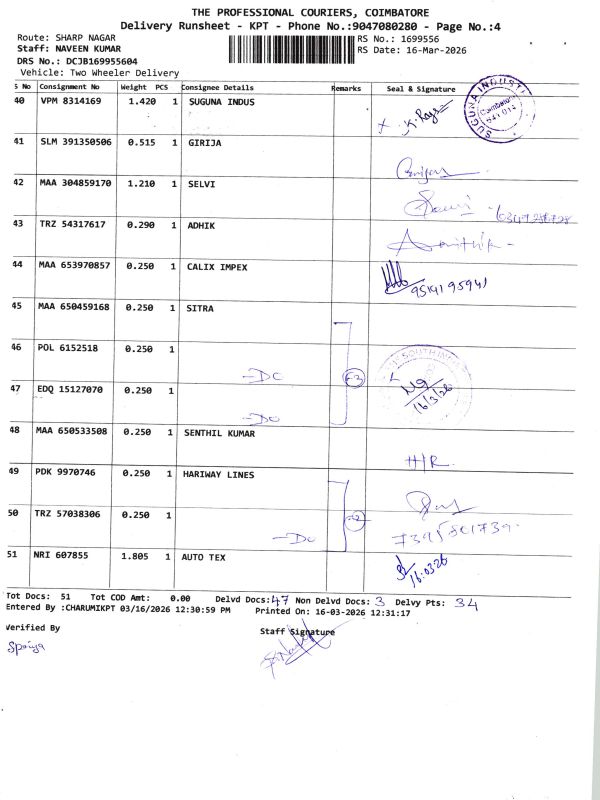 THE PROFESSIONAL COURIERS, COIMBATORE
Delivery Runsheet - KPT - Phone No.:9047080280 - Page No.:4
Route: SHARP NAGAR RS No.: 1699556
Staff: NAVEEN KUMAR RS Date: 16-Mar-2026
DRS No.: DCJB169955604
Vehicle: Two Wheeler Delivery
S No Consignment No Weight PCS Consignee Details Remarks Seal & Signature
40 VPM 8314169 1.420 1 SUGUNA INDUS
SUGUNA INDUSTI
Coimbatore
641 014
41 SLM 391350506 0.515 1 GIRIJA
42 MAA 304859170 1.210 1 SELVI
43 TRZ 54317617 0.290 1 ADHIK
44 MAA 653970857 0.250 1 CALIX IMPEX
9514195941
45 MAA 650459168 0.250 1 SITRA
46 POL 6152518 0.250 1
-DO
SOUTH INDIA
16/3/26
47 EDQ 15127070 0.250 1
-DO
48 MAA 650533508 0.250 1 SENTHIL KUMAR
H/R
49 PDK 9970746 0.250 1 HARIWAY LINES
50 TRZ 57038306 0.250 1
-DO
51 NRI 607855 1.805 1 AUTO TEX
16.03.26
Tot Docs: 51 Tot COD Amt: 0.00 Delvd Docs: 47 Non Delvd Docs: 3 Delvy Pts: 34
Entered By :CHARUMIKPT 03/16/2026 12:30:59 PM Printed On: 16-03-2026 12:31:17
Verified By Staff Signature